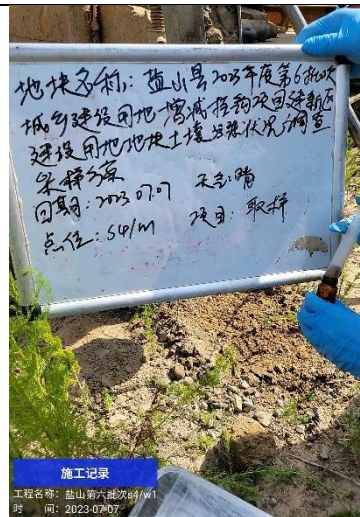 地块名称：盐山县2023年度第6批次
城乡建设用地增减挂钩项目建新区
建设用地地块土壤污染状况调查
采样方案
日期：2023.07.07 天气：晴
点位：S4/W1 项目：取样
施工记录
工程名称：盐山第六批次s4/w1
时 间：2023-07-07